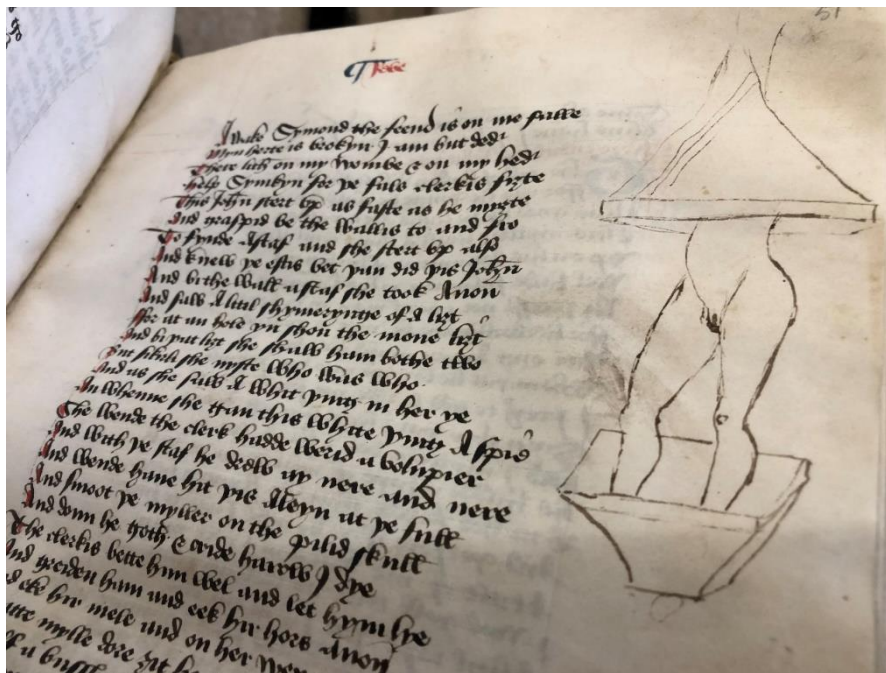 51
¶ Reve
Awake Symond the feend is on me falle
Myn herte is brokyn I am but ded
There lith on my wombe & on my hed
help Symkyn for þe fals clerkis fiȝte
This John stert vp as faste as he myȝte
And graspid be the wallis to and fro
To fynde A staf and she stert vp also
And knew þe estis bet þan did þis John
And bi the wall a staf she took Anon
And saw A litil shymerynge of A liȝt
ffor at an hole yn shon the mone liȝt
And bi þat liȝt she shaw ham bothe two
But sikerli she nyste who was who
And as she saw A whit þing in her ye
An whenne she gan this whyte þing A spie
She wende the clerk hadde werid a volupier
And with þe staf he drow ay nere and nere
And wende haue hit þis Aleyn at þe full
And smoot þe myller on the pilid skull
And doun he goth & cride harrow I dye
The clerkis bette him wel and let hym lye
And greiden ham and eek hir hors Anon
eke hir mele and on her
atte mylle dore ȝit
of a